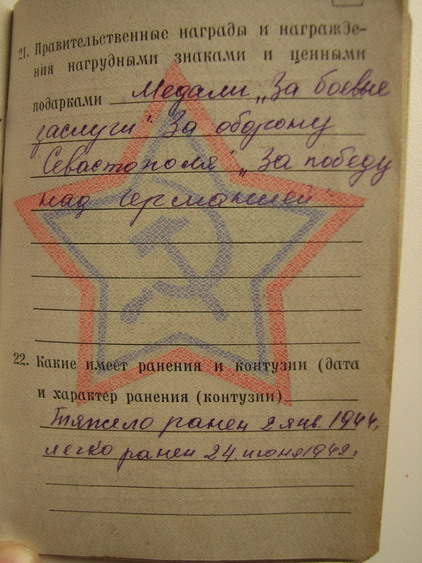 21. Правительственные награды и награжде-
ния нагрудными знаками и ценными
подарками Медали „За боевые
заслуги" За оборону
Севастополя" „За победу
над Германией"
22. Какие имеет ранения и контузии (дата
и характер ранения (контузии)
Тяжело ранен 2 янв. 1944,
легко ранен 24. июня 1942г.